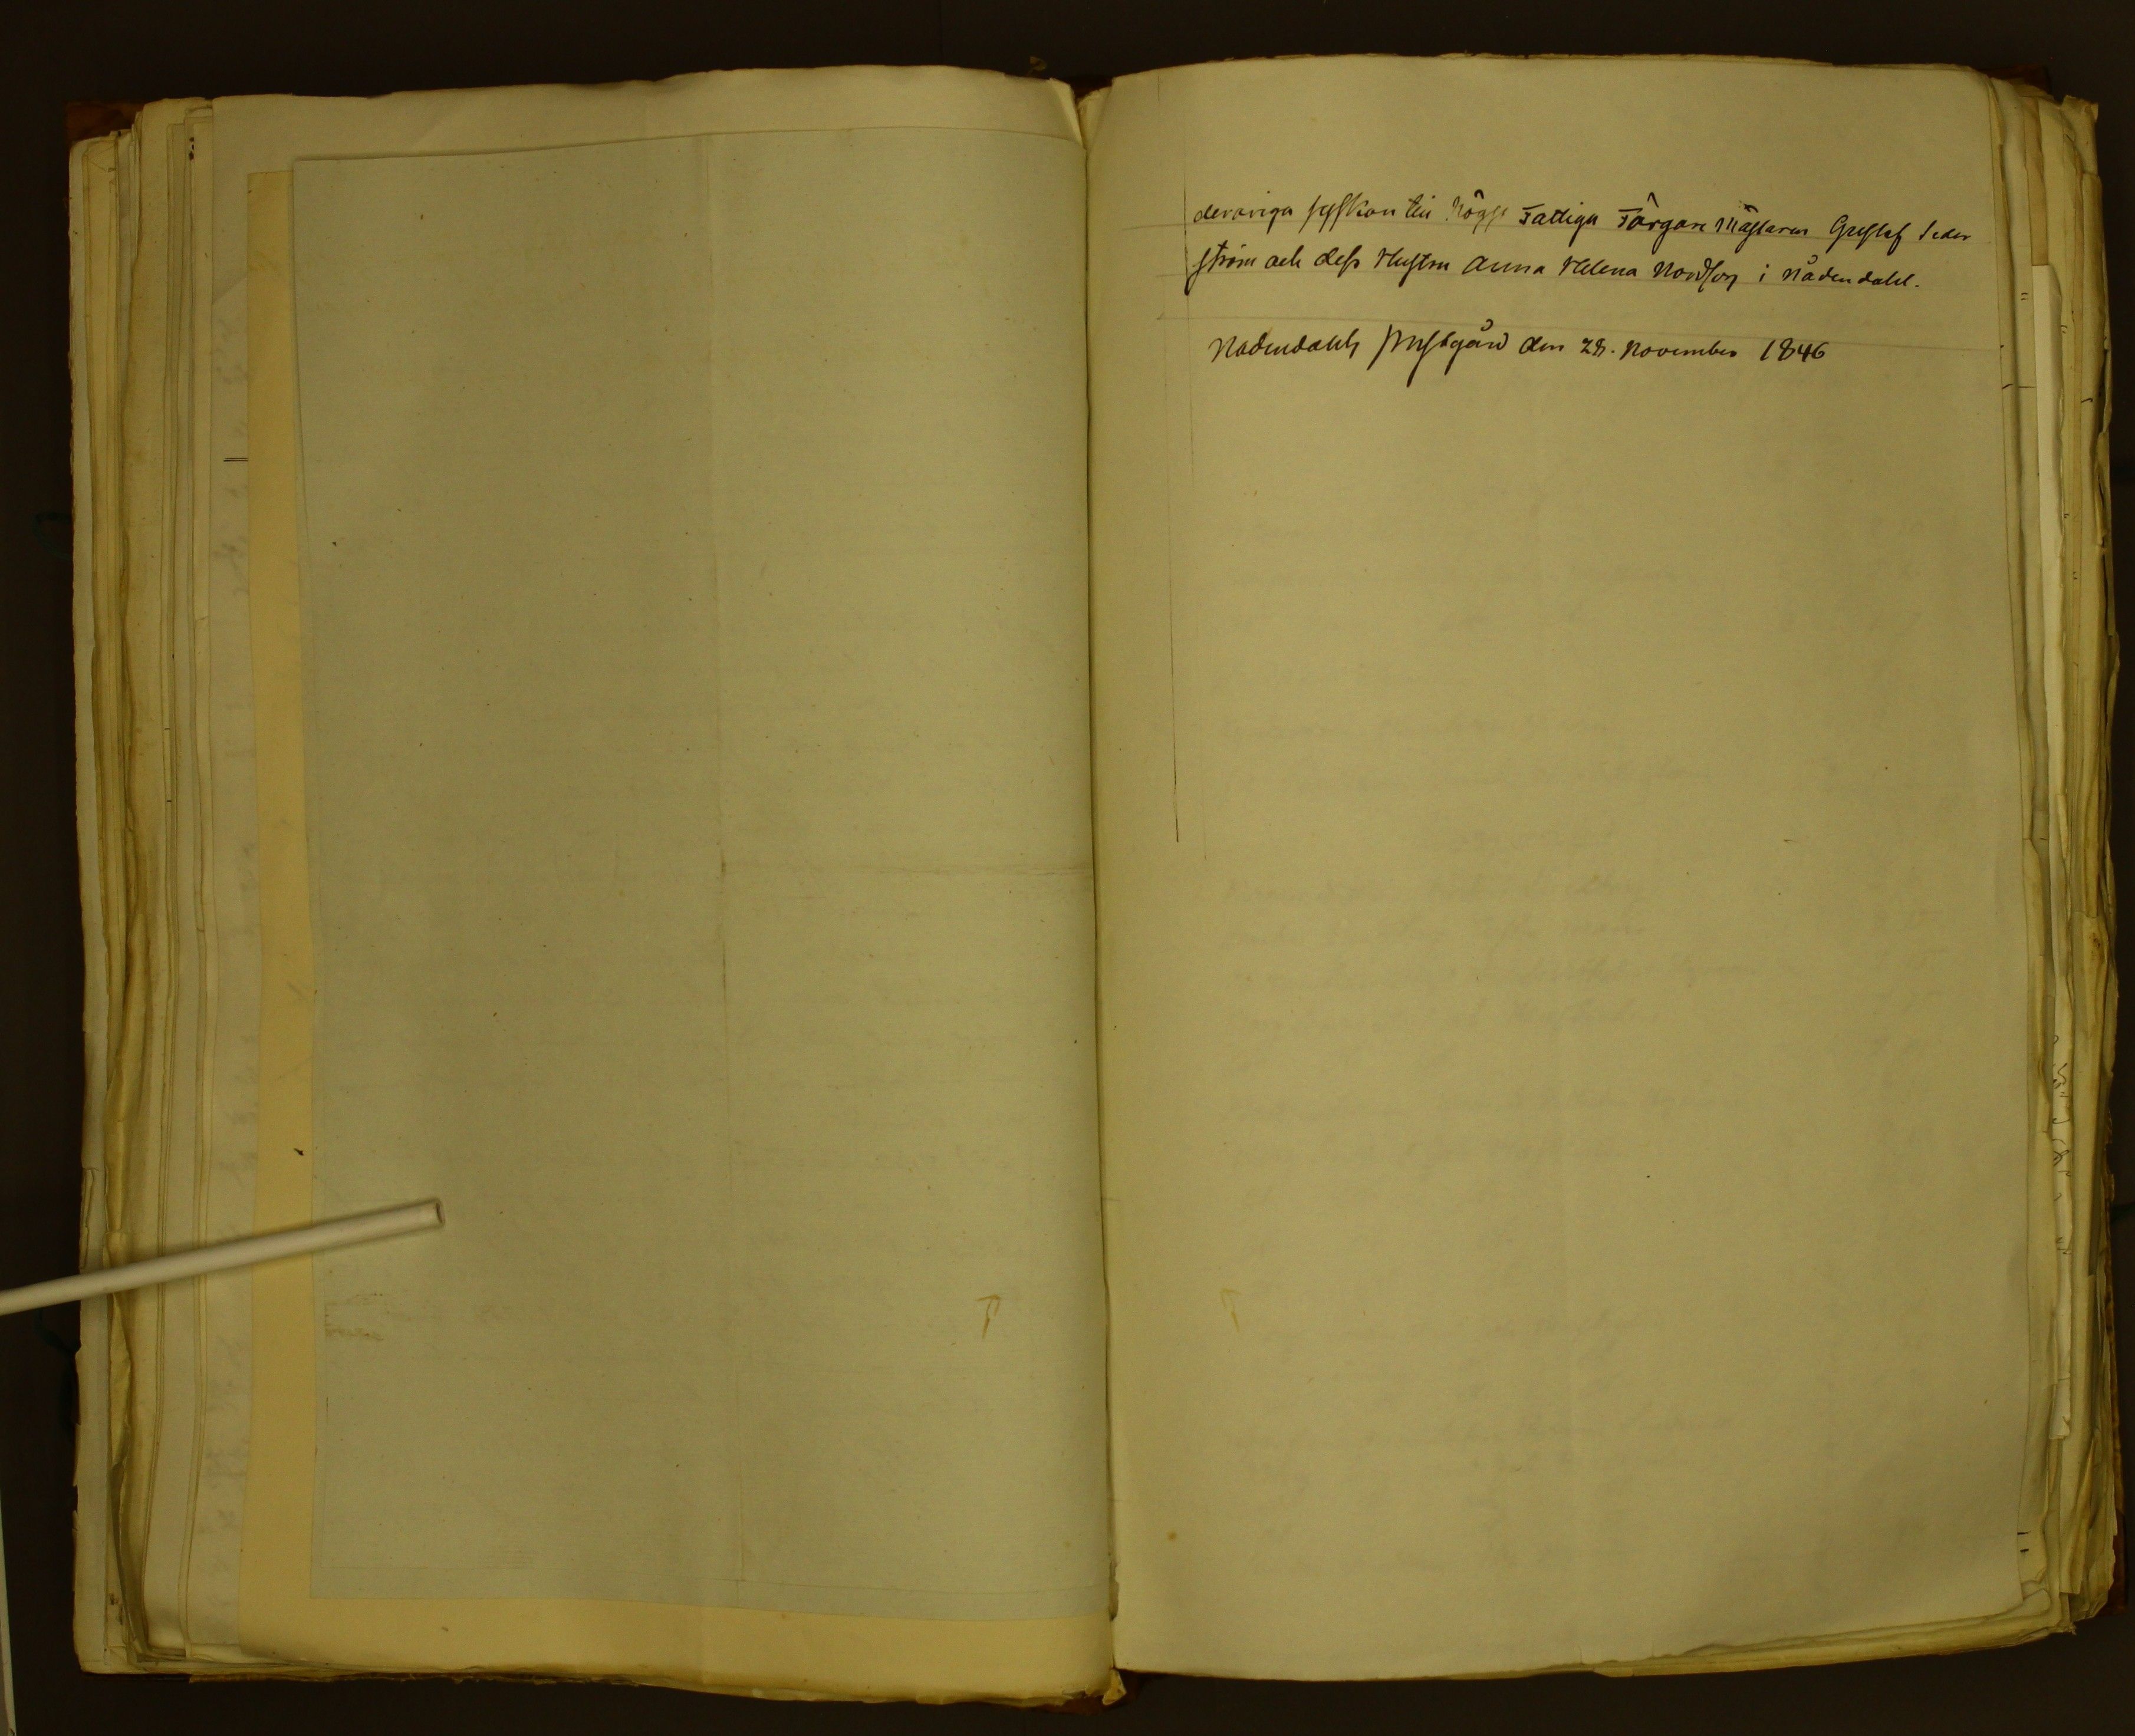 derariga syskon till högst Fattiga Färgare Mästaren Gustaf Seder
ström och dess Hustru Anna Helena Nordfors i Nådendahl.
Nådendahls prestgård den 28. November 1846